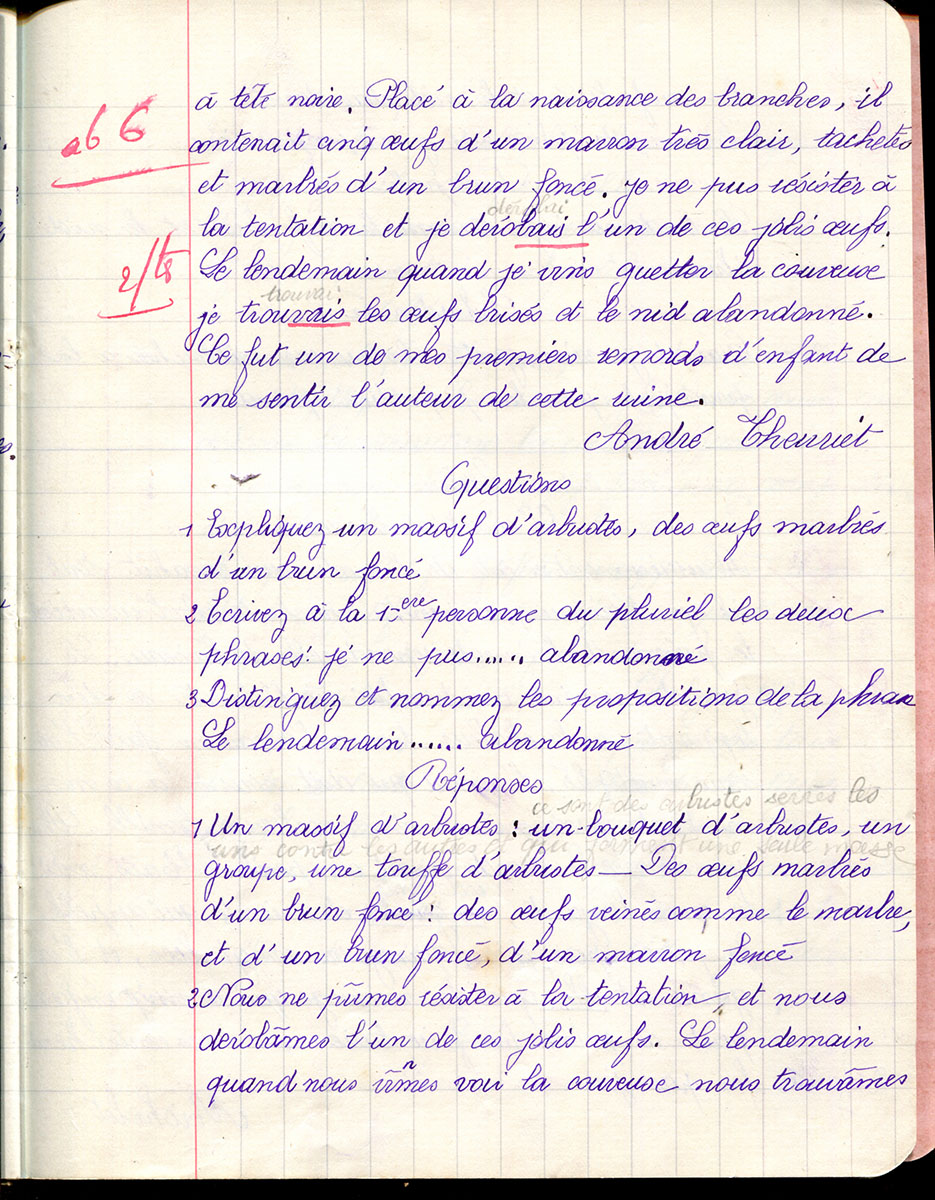 à tête noire. Placé à la naissance des branches, il
ab 6
contenait cinq œufs d'un marron très clair, tachetés
et marbrés d'un brun foncé. Je ne pus résister à
dérobai
la tentation et je dérobais l'un de ces jolis œufs.
2/t8
Le lendemain quand je vins guetter la couveuse
trouvai
je trouvais les œufs brisés et le nid abandonné.
Ce fut un de mes premiers remords d'enfant de
me sentir l'auteur de cette ruine.
André Theuriet
Questions
1 Expliquez un massif d'arbustes, des œufs marbrés
d'un brun foncé
2 Ecrivez à la 1ere personne du pluriel les deux
phrases : je ne pus...... abandonné
3 Distinguez et nommez les propositions de la phrase
Le lendemain...... abandonné
Réponses
ce sont des arbustes serrés les
1 Un massif d'arbustes : un bouquet d'arbustes, un
uns contre les autres et qui forment une seule masse
groupe, une touffe d'arbustes — Des œufs marbrés
d'un brun foncé : des œufs veinés comme le marbre,
et d'un brun foncé, d'un marron foncé
2 Nous ne pûmes résister à la tentation, et nous
dérobâmes l'un de ces jolis œufs. Le lendemain
n
quand nous vîmes voir la couveuse nous trouvâmes